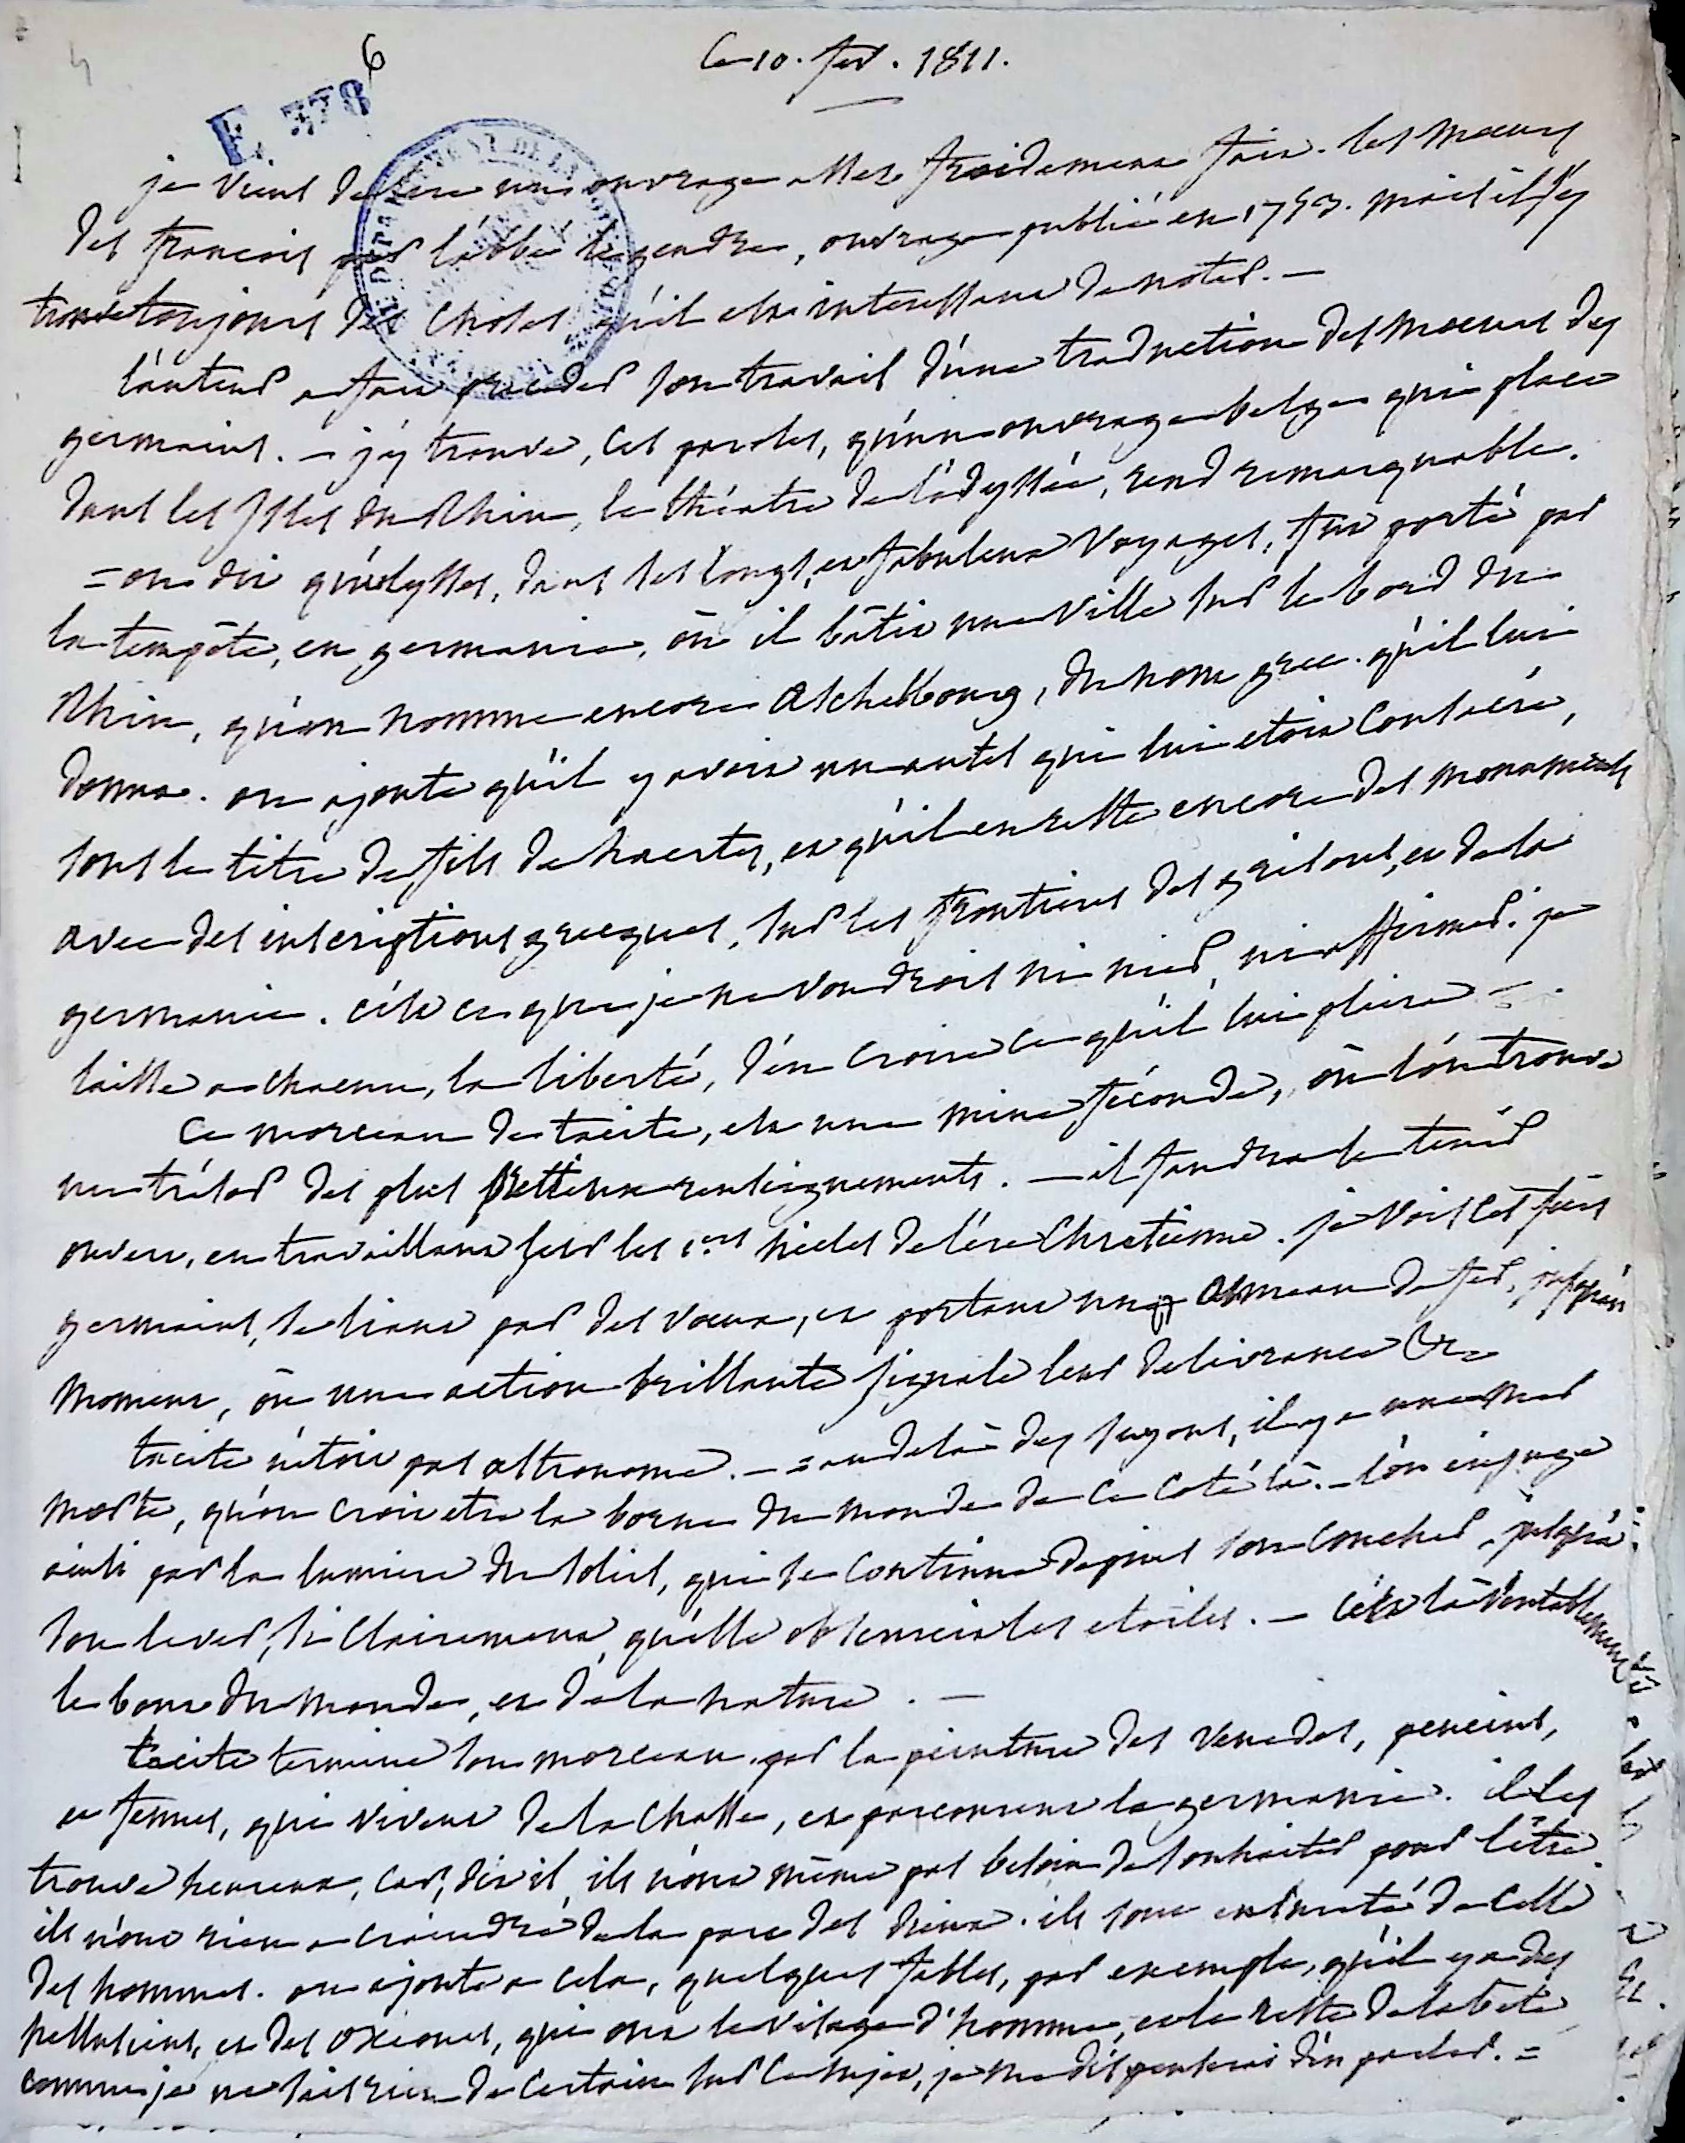 6
Ce 10. fev. 1811.
E 378
je viens de lire un ouvrage assez froidement fait. les mœurs
des francais par l'abbé le gendre, ouvrage publié en 1753. mais il s'y
trouve toujours des choses qu'il est interessant de noter. —
l'auteur a fait preceder son travail d'une traduction des mœurs des
germains. — j'y trouve, ces paroles, qu'un ouvrage belge qui place
dans les isles du Rhin, le théatre de l'odyssée, rend remarquable.
= on dit qu'ulysses, dans ses longs, et fabuleux voyages, fut porté par
la tempête, en germanie, où il bâtit une ville sur le bord du
Rhin, qu'on nomme encore Aschelbourg, du nom grec. qu'il lui
donna. on ajoute qu'il y avoit un autel qui lui etoit consacré,
sous le titre de fils de Laertes, et qu'il en reste encore des monuments
avec des inscriptions grecques, sur les frontieres des grisons, et de la
germanie. c'est ce que je ne voudrois ni nier, ni affirmer. je
laisse a chacun, la liberté, d'en croire ce qu'il lui plaira =.
Ce morceau de tacite, est une mine féconde, où l'on trouve
un trésor des plus prétieux renseignements. — il faudra le tenir
ouvert, en travaillant sur les 1ers siecles de l'ere chretienne. je vois ces fiers
germains, se liant par des vœux, et portant un anneau de fer, jusqu'au
moment, où une action brillante signale leur delivrance &c
tacite n'étoit pas astronome. — = au delà des suyons, il y a une mer
morte, qu'on croit etre la borne du monde de ce coté là. — l'on en juge
ainsi par la lumiere du soleil, qui se continue depuis son coucher, jusqu'à
son lever, si clairement, qu'elle obscurcit les etoiles. — c'est là veritablement
le bout du monde, et de la nature. —
tacite termine son morceau par la peinture des venedes, peucins,
et fennes, qui vivent de la chasse, et parcourent la germanie. il les
trouve heureux, car, dit il, ils n'ont même pas besoin de souhaiter pour l'être.
ils n'ont rien a craindre de la part des dieux. ils sont en sureté de celle
des hommes. on ajoute a cela, quelques fables, par exemple, qu'il y a des
hellusiens, et des oxiones, qui ont le visage d'homme, et le reste de la bete
comme je ne sais rien de certain sur ce sujet, je me dispenserai d'en parler. =